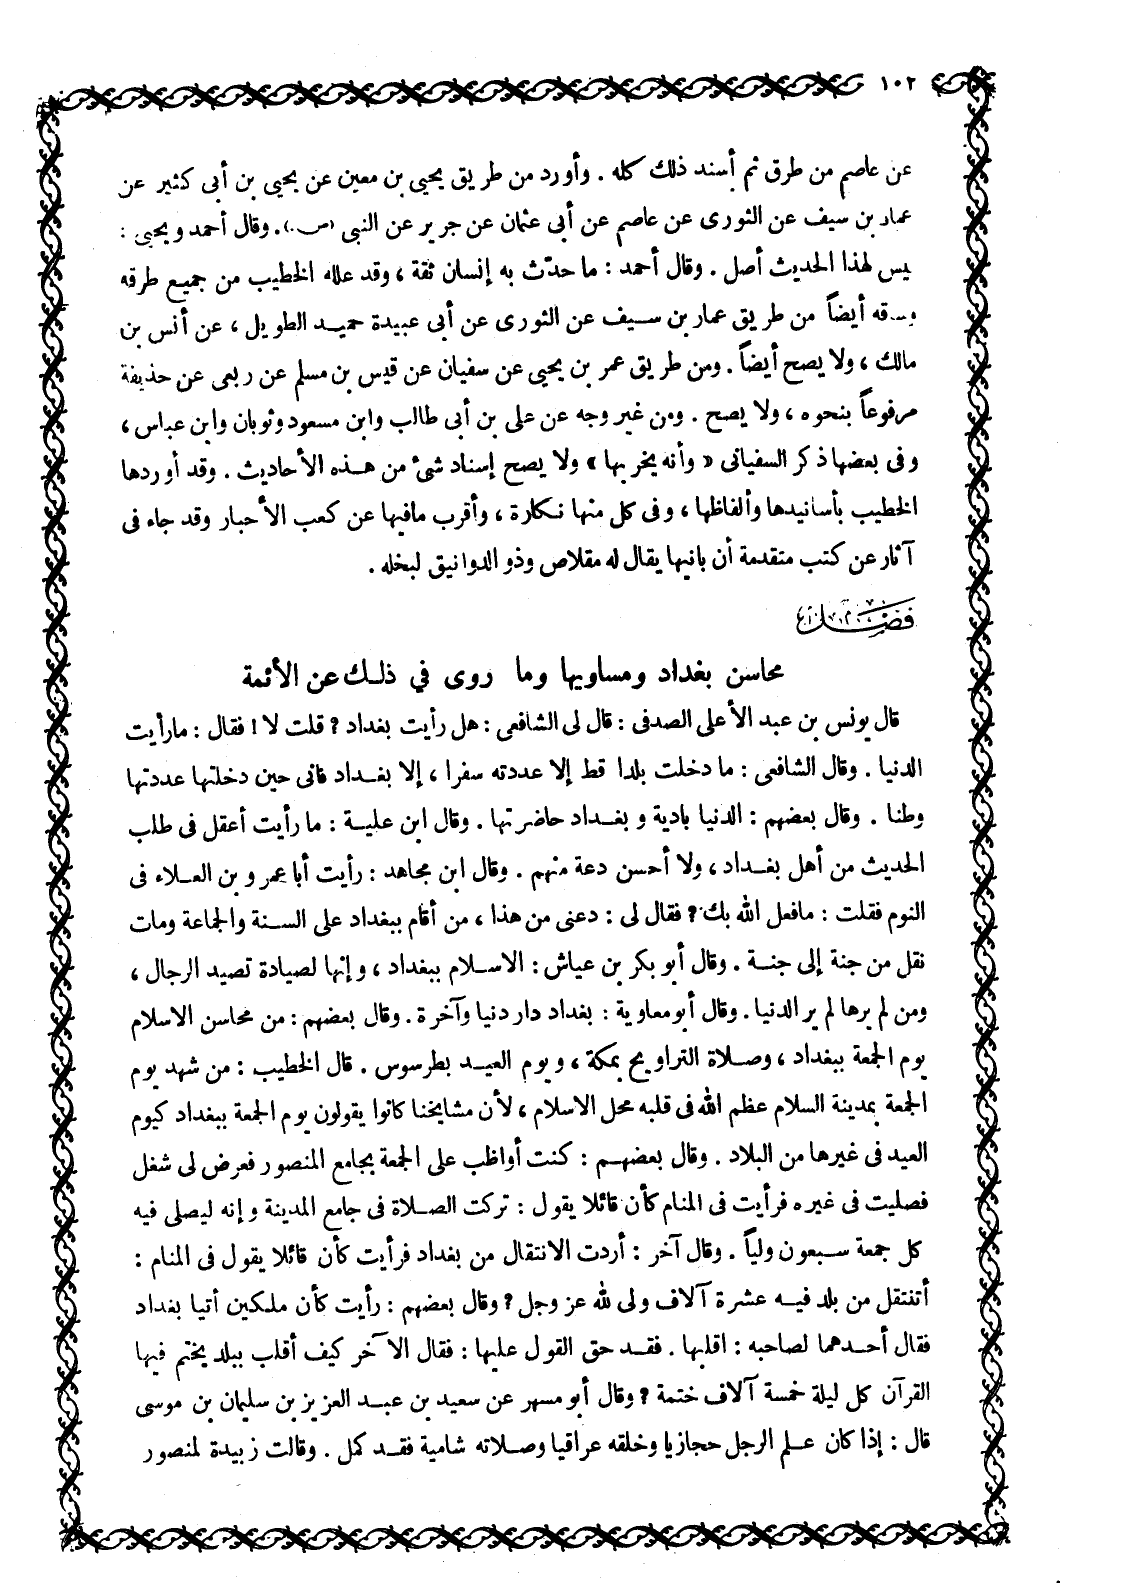 ١٠٢
عن عاصم من طرق ثم أسند ذلك كله . وأورد من طريق يحيى بن معين عن يحيى بن أبى كثير عن
عمار بن سيف عن الثورى عن عاصم عن أبى عثمان عن جرير عن النبى (ص.). وقال أحمد ويحيى :
ليس لهذا الحديث أصل . وقال أحمد : ما حدّث به إنسان ثقة ، وقد علله الخطيب من جميع طرقه
وساقه أيضاً من طريق عمار بن سيف عن الثورى عن أبى عبيدة حميد الطويل ، عن أنس بن
مالك ، ولا يصح أيضاً . ومن طريق عمر بن يحيى عن سفيان عن قيس بن مسلم عن ربعى عن حذيفة
مرفوعاً بنحوه ، ولا يصح . ومن غير وجه عن على بن أبى طالب وابن مسعود وثوبان وابن عباس ،
وفى بعضها ذكر السفيانى « وأنه يخربها » ولا يصح إسناد شئ من هذه الأحاديث . وقد أوردها
الخطيب بأسانيدها وألفاظها ، وفى كل منها نكارة ، وأقرب مافيها عن كعب الأحبار وقد جاء فى
آثار عن كتب متقدمة أن بانيها يقال له مقلاص وذو الدوانيق لبخله .
فصل
محاسن بغداد ومساويها وما روى في ذلك عن الأئمة
قال يونس بن عبد الأعلى الصدفى : قال لى الشافعى : هل رأيت بغداد ؟ قلت لا ! فقال : مارأيت
الدنيا . وقال الشافعى : ما دخلت بلدا قط إلا عددته سفرا ، إلا بغداد فانى حين دخلتها عددتها
وطنا . وقال بعضهم : الدنيا بادية وبغداد حاضرتها . وقال ابن علية : ما رأيت أعقل فى طلب
الحديث من أهل بغداد ، ولا أحسن دعة منهم . وقال ابن مجاهد : رأيت أبا عمرو بن العلاء فى
النوم فقلت : مافعل الله بك ؟ فقال لى : دعنى من هذا ، من أقام ببغداد على السنة والجماعة ومات
نقل من جنة إلى جنة . وقال أبو بكر بن عياش : الاسلام ببغداد ، وإنها لصيادة تصيد الرجال ،
ومن لم يرها لم ير الدنيا . وقال أبو معاوية : بغداد دار دنيا وآخرة . وقال بعضهم : من محاسن الاسلام
يوم الجمعة ببغداد ، وصلاة التراويح بمكة ، ويوم العيد بطرسوس . قال الخطيب : من شهد يوم
الجمعة بمدينة السلام عظم الله فى قلبه محل الاسلام ، لأن مشايخنا كانوا يقولون يوم الجمعة ببغداد كيوم
العيد فى غيرها من البلاد . وقال بعضهم : كنت أواظب على الجمعة بجامع المنصور فعرض لى شغل
فصليت فى غيره فرأيت فى المنام كأن قائلا يقول : تركت الصلاة فى جامع المدينة وإنه ليصلى فيه
كل جمعة سبعون ولياً . وقال آخر : أردت الانتقال من بغداد فرأيت كأن قائلا يقول فى المنام :
أتنتقل من بلد فيه عشرة آلاف ولى لله عز وجل ؟ وقال بعضهم : رأيت كأن ملكين أتيا بغداد
فقال أحدهما لصاحبه : اقلبها . فقد حق القول عليها : فقال الآخر كيف أقلب ببلد يختم فيها
القرآن كل ليلة خمسة آلاف ختمة ؟ وقال أبو مسهر عن سعيد بن عبد العزيز بن سليمان بن موسى
قال : إذا كان علم الرجل حجازيا وخلقه عراقيا وصلاته شامية فقد كمل . وقالت زبيدة لمنصور